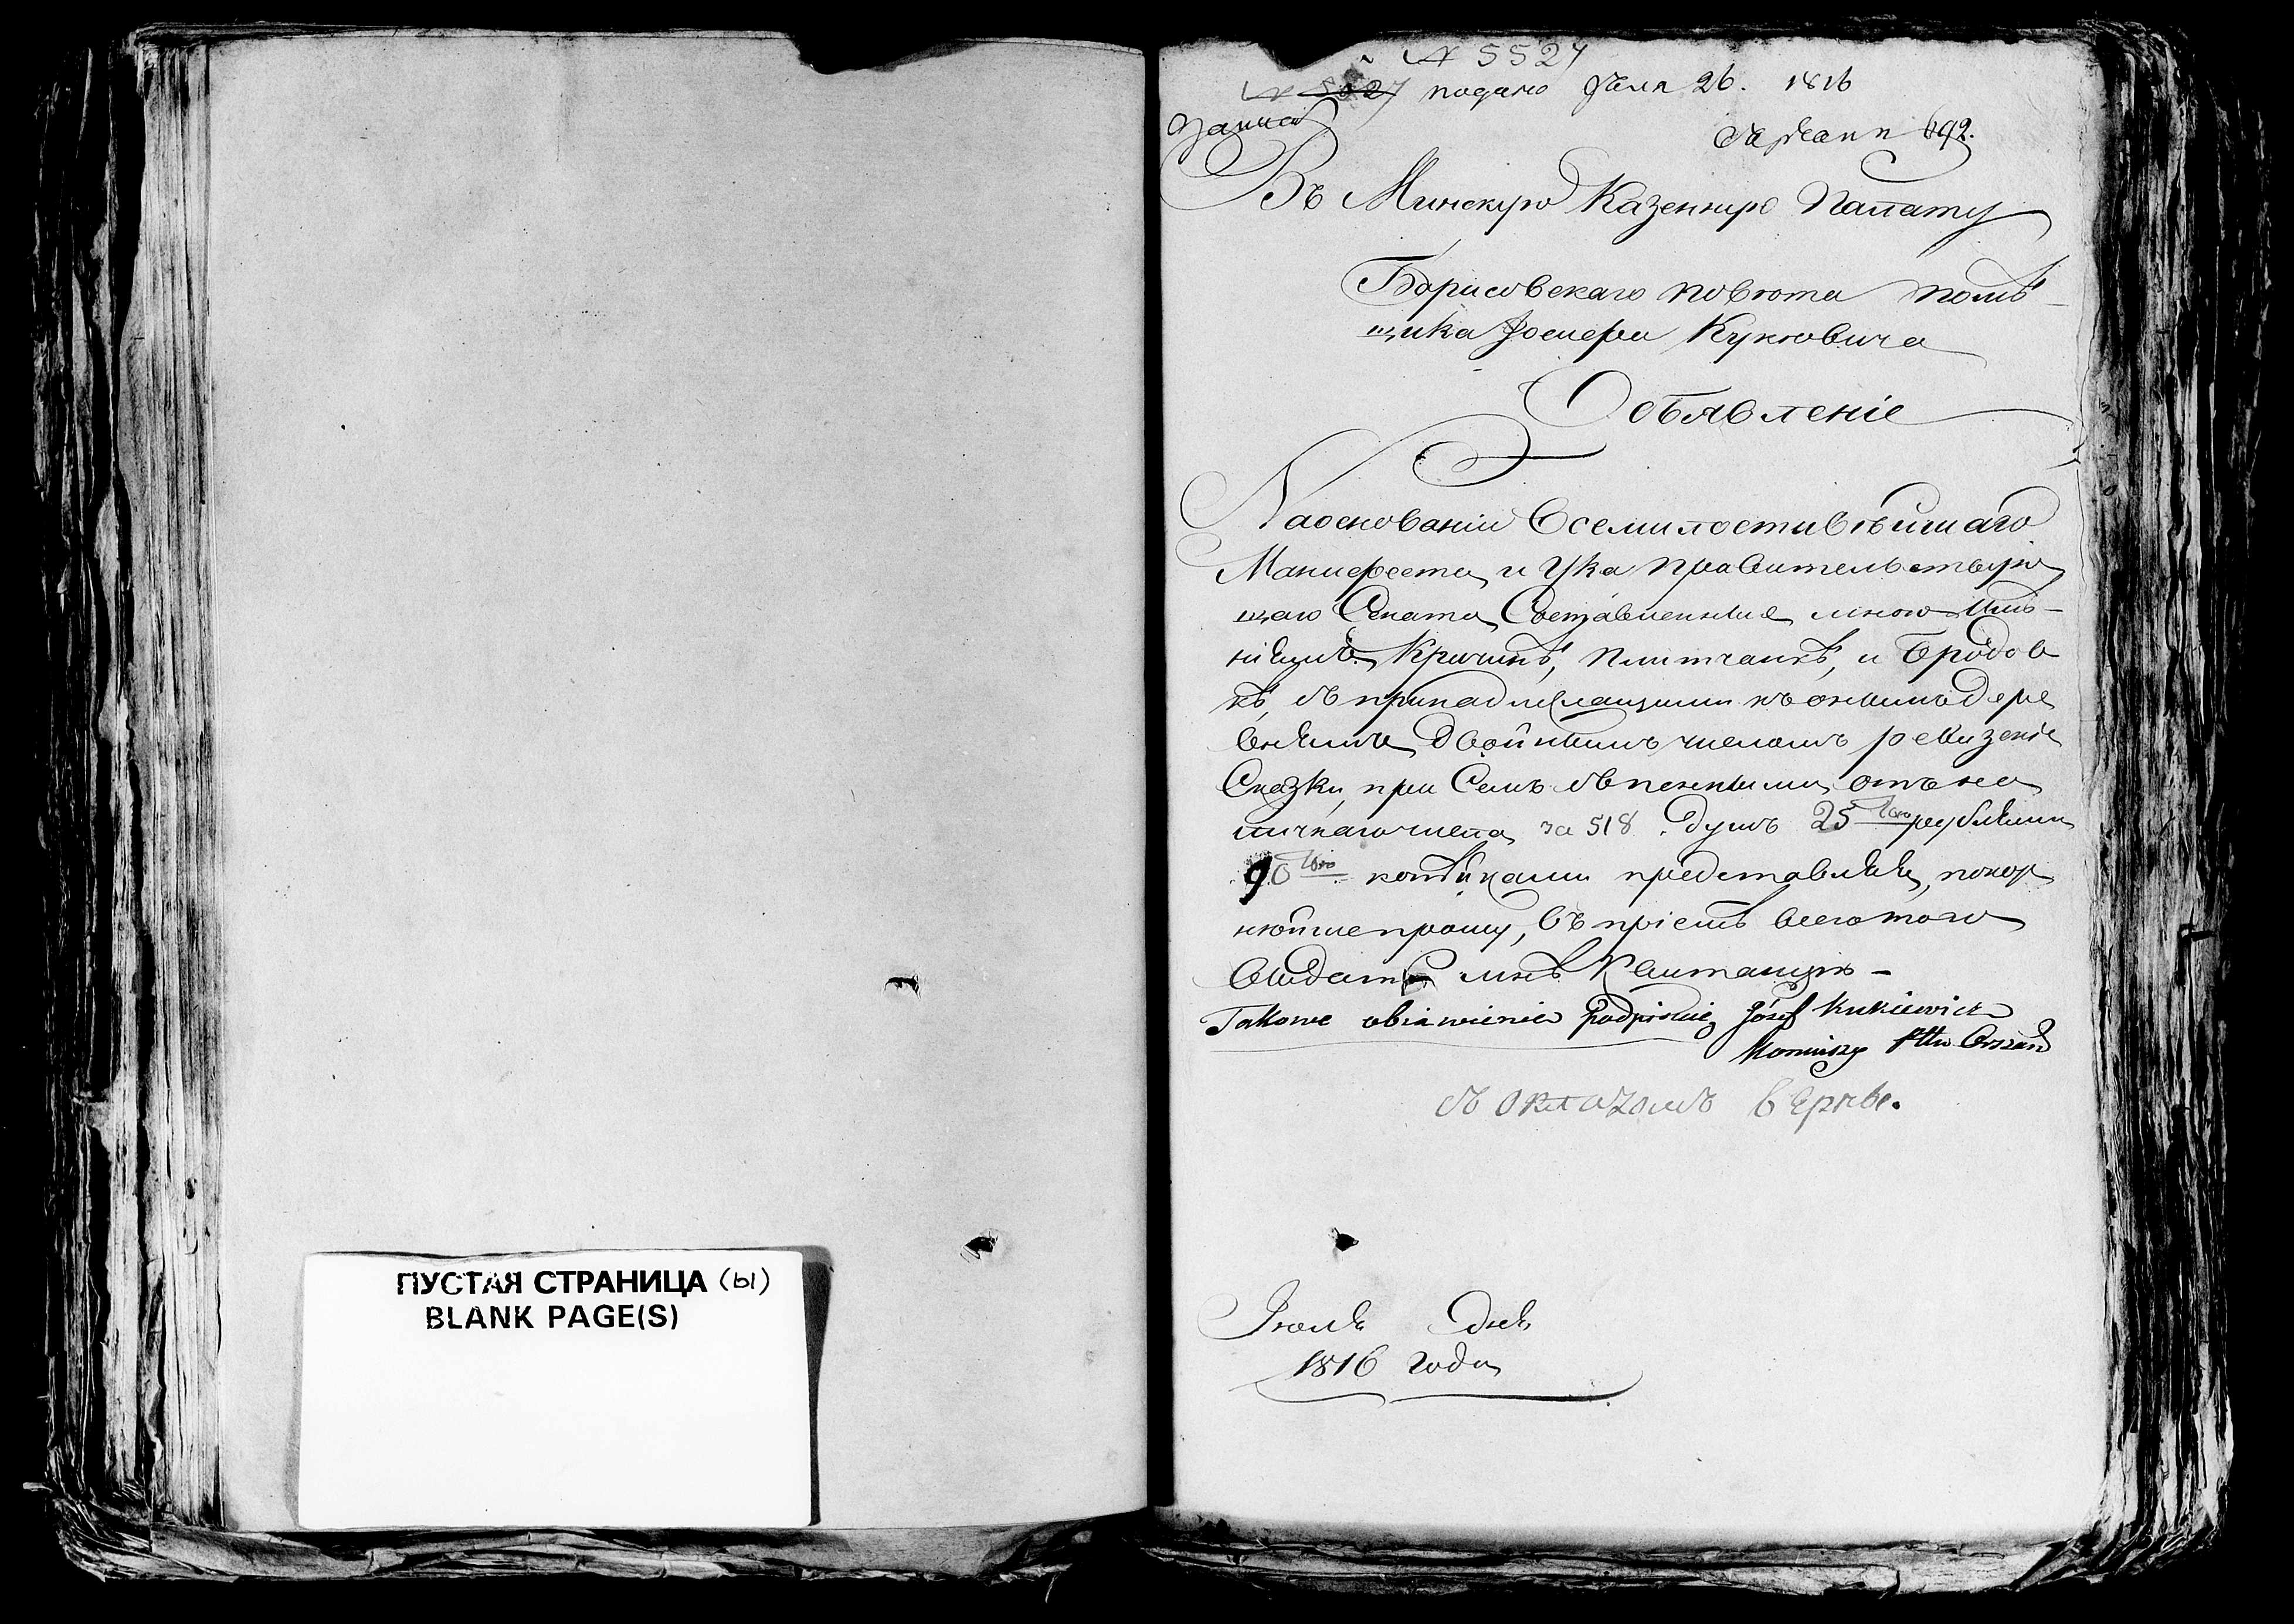 ПУСТАЯ СТРАНИЦА (ы)
BLANK PAGE(S)
№ 5527
подано Июля 26. 1816
692.
Въ Минскую Казенную Палату
Борисовскаго повѣта помѣ-
щика Іосифа Кукевича
Объявленіе
На основаніи Всемилостивѣйшаго
Манифеста, и Ука Правительствую
щаго Сената, Составленные мною имѣ-
ніямъ Кричинѣ, Плитчанкѣ, и Бродов
кѣ, съ принадлежащими къ онымъ дере
внямъ двойнымъ числомъ ревизскіе
Сказки, при семъ съ пенными отъ на
личнаго числа за 518 душъ 25 тью рублями
90 тью копѣйками представляя, покор
нѣйше прошу, въ пріемѣ всего того
выдать мнѣ Квитанцію -
Takowe obiawienie podpisuię Józef Kukiewicz
съ окладомъ вѣрны.
Іюля дня
1816 года